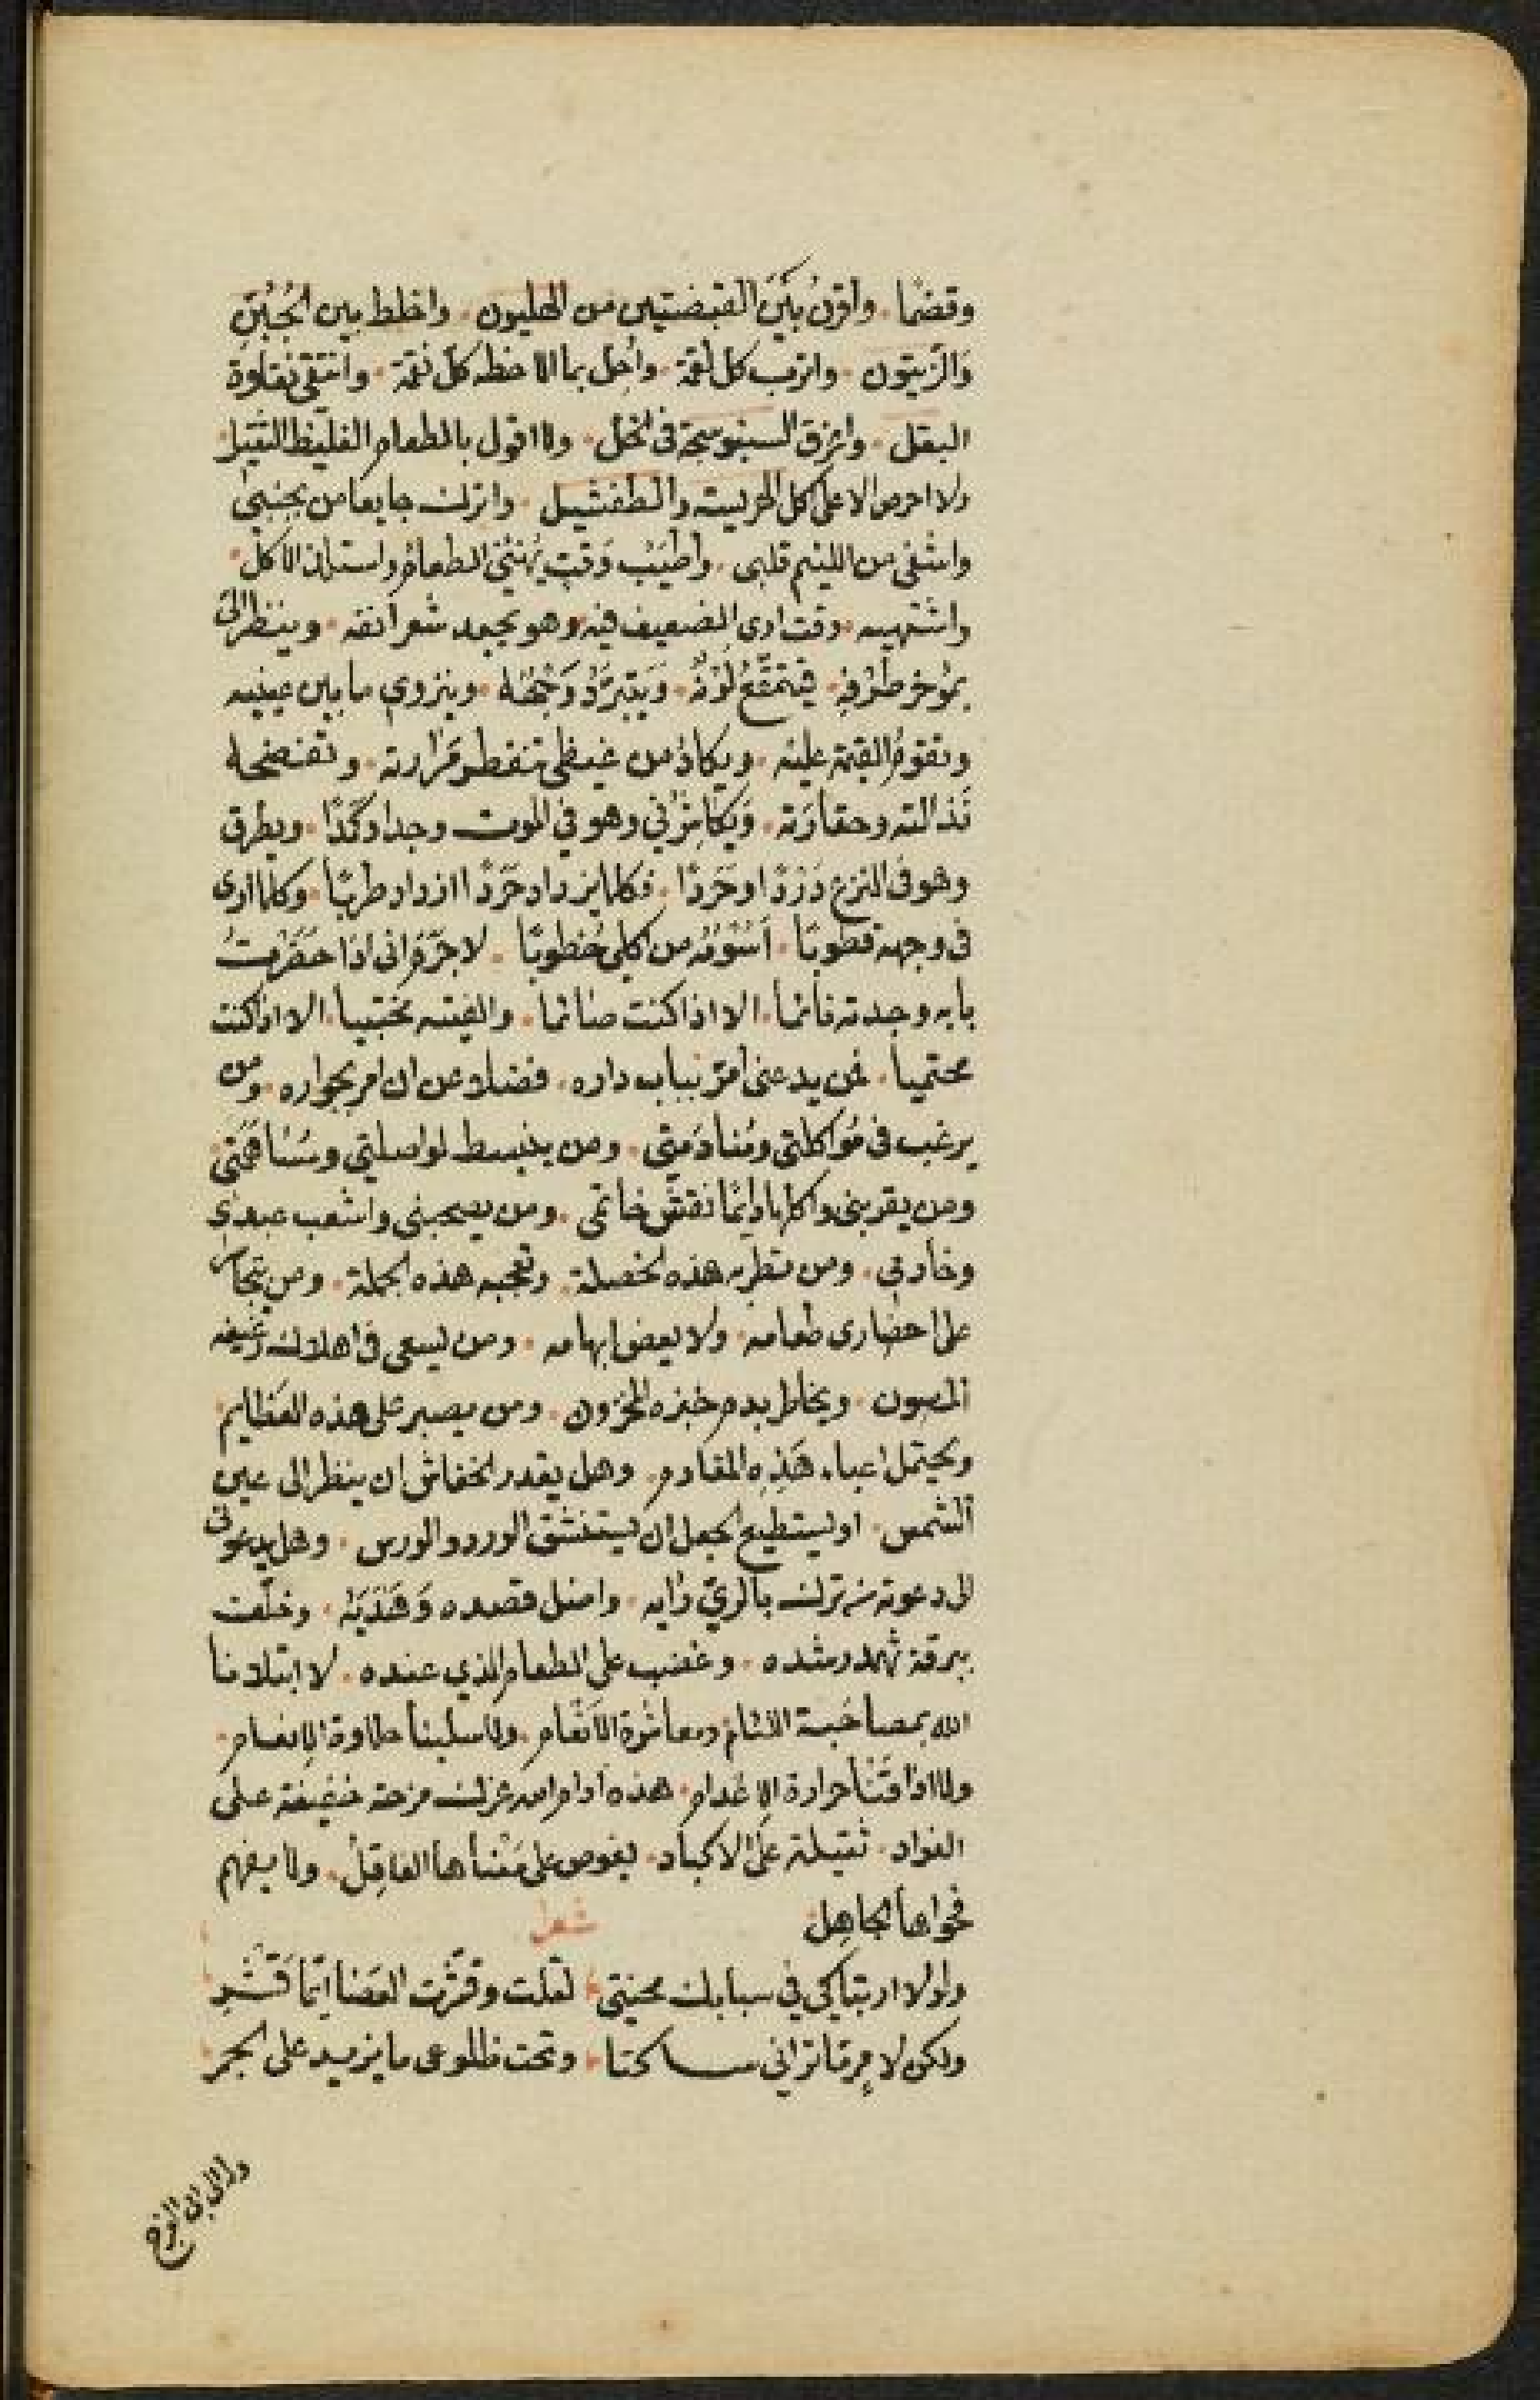 وقضما . واقرنُ بَيْنَ القبضتين من الهليون . واخلط بين الجُبُنِ
وَالزيتون . وارتب كل لقمة . واحل بما الاحظه كل نقمة . وانتقى نقاوة
البقل . واغرق السنبوسجة فى الخل . ولا اقول بالطعام الغليظ الثقيل
ولا احرص الا على اكل الهريسة والطفشيل . واترك جايعا من بجنبى
واشفى من اللئيم قلبى . وأطيَبُ وَقتٍ يُهنئنى الطعامُ واستلذ الاكل .
واشتهيه . وقت ارى المضيف فيه وهو يجعد شعر انفه . وينظر الىّ
بمُوخر طَرْفِهِ . فيتمقّعُ لَوْنُهُ . وَيَتَربّدُ وَجْهُهُ . وينزوى ما بين عينيه
وتقومُ القيمة عليه . ويكادُ من غيظى تنفطر مَرارته . وتفضحه
نَذالته وحقارَته . وَيكاشِرُنى وهو فى الموت وجدا وكَمَدًا . ويطرق
وهو فى النزع دَرَدًا وحَرَدًا . فكلما يزداد حَرَدًا ازداد طربًا . وكلما ارى
فى وجهه قطوبًا . اَسْتَوْفُه من اكلى خطوبًا . لا جَرَم انى اذا حَضَرتُ
بابه وجدته نائما . الا اذا كنت صائما . والفيته مختبيا . الا اذا كنت
محتميا . فمن يدعنى امُرّ بباب داره . فضلا عن ان امر بجواره . ومن
يرغب فى مُواكلتى ومُنادَمتى . ومن ينبسط لمواصلتى ومُسَاهَمَتى
ومن يقربنى واكلها دايمًا نقش خاتمى . ومن يصحبنى واشعب عبدى
وخادمى . ومن تطربه هذه الخصلة . وتعجبه هذه الجملة . ومن يتجاسر
على احضارى طعامه . ولا يعض ابهامه . ومن يسعى فى اهلاك رغيفه
المصون . ويخاطر بدم خبزه المخزون . ومن يصبر على هذه العظايم .
ويحتمل اعباء هَذِهِ المغارم . وهل يقدر الخفاش ان ينظر الى عين
الشمس . او ليستطيع الجعل ان يستنشق الورد والورس . وهل يدعونى
الى دعوته من ترك بالرىّ رايه . واضل قصده وَهَدْيَهُ . وخلّف
ببرقة ثهمد رشده . وغضب على الطعام الذي عنده . لا ابتلانا
الله بمصاحبة اللئام ومعاشرة الانعام . ولا سلبنا حلاوة الإنعام .
ولا اذاقَنَا حرارة الإعدام . هذه ادام الله عزك مزحة خفيفة على
الفواد . ثقيلة على الاكباد . يغوص على مَعْناها العاقِلُ . ولا يفهم
فحواها الجاهِلُ
شعر
ولولا ارتباكى فى سبابك محنتى لقلت وقشرت العصا ايّما قَشْرِ
ولكن لامرٍ ما ترانى ساكتا وتحت ضلوعى ما يزيد على الجمر
وله الى ابى الفرج